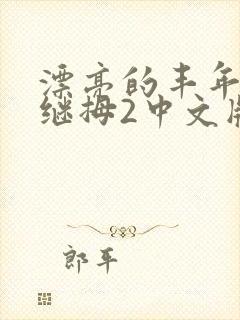 漂亮的丰年
继拇2中文版
郎平